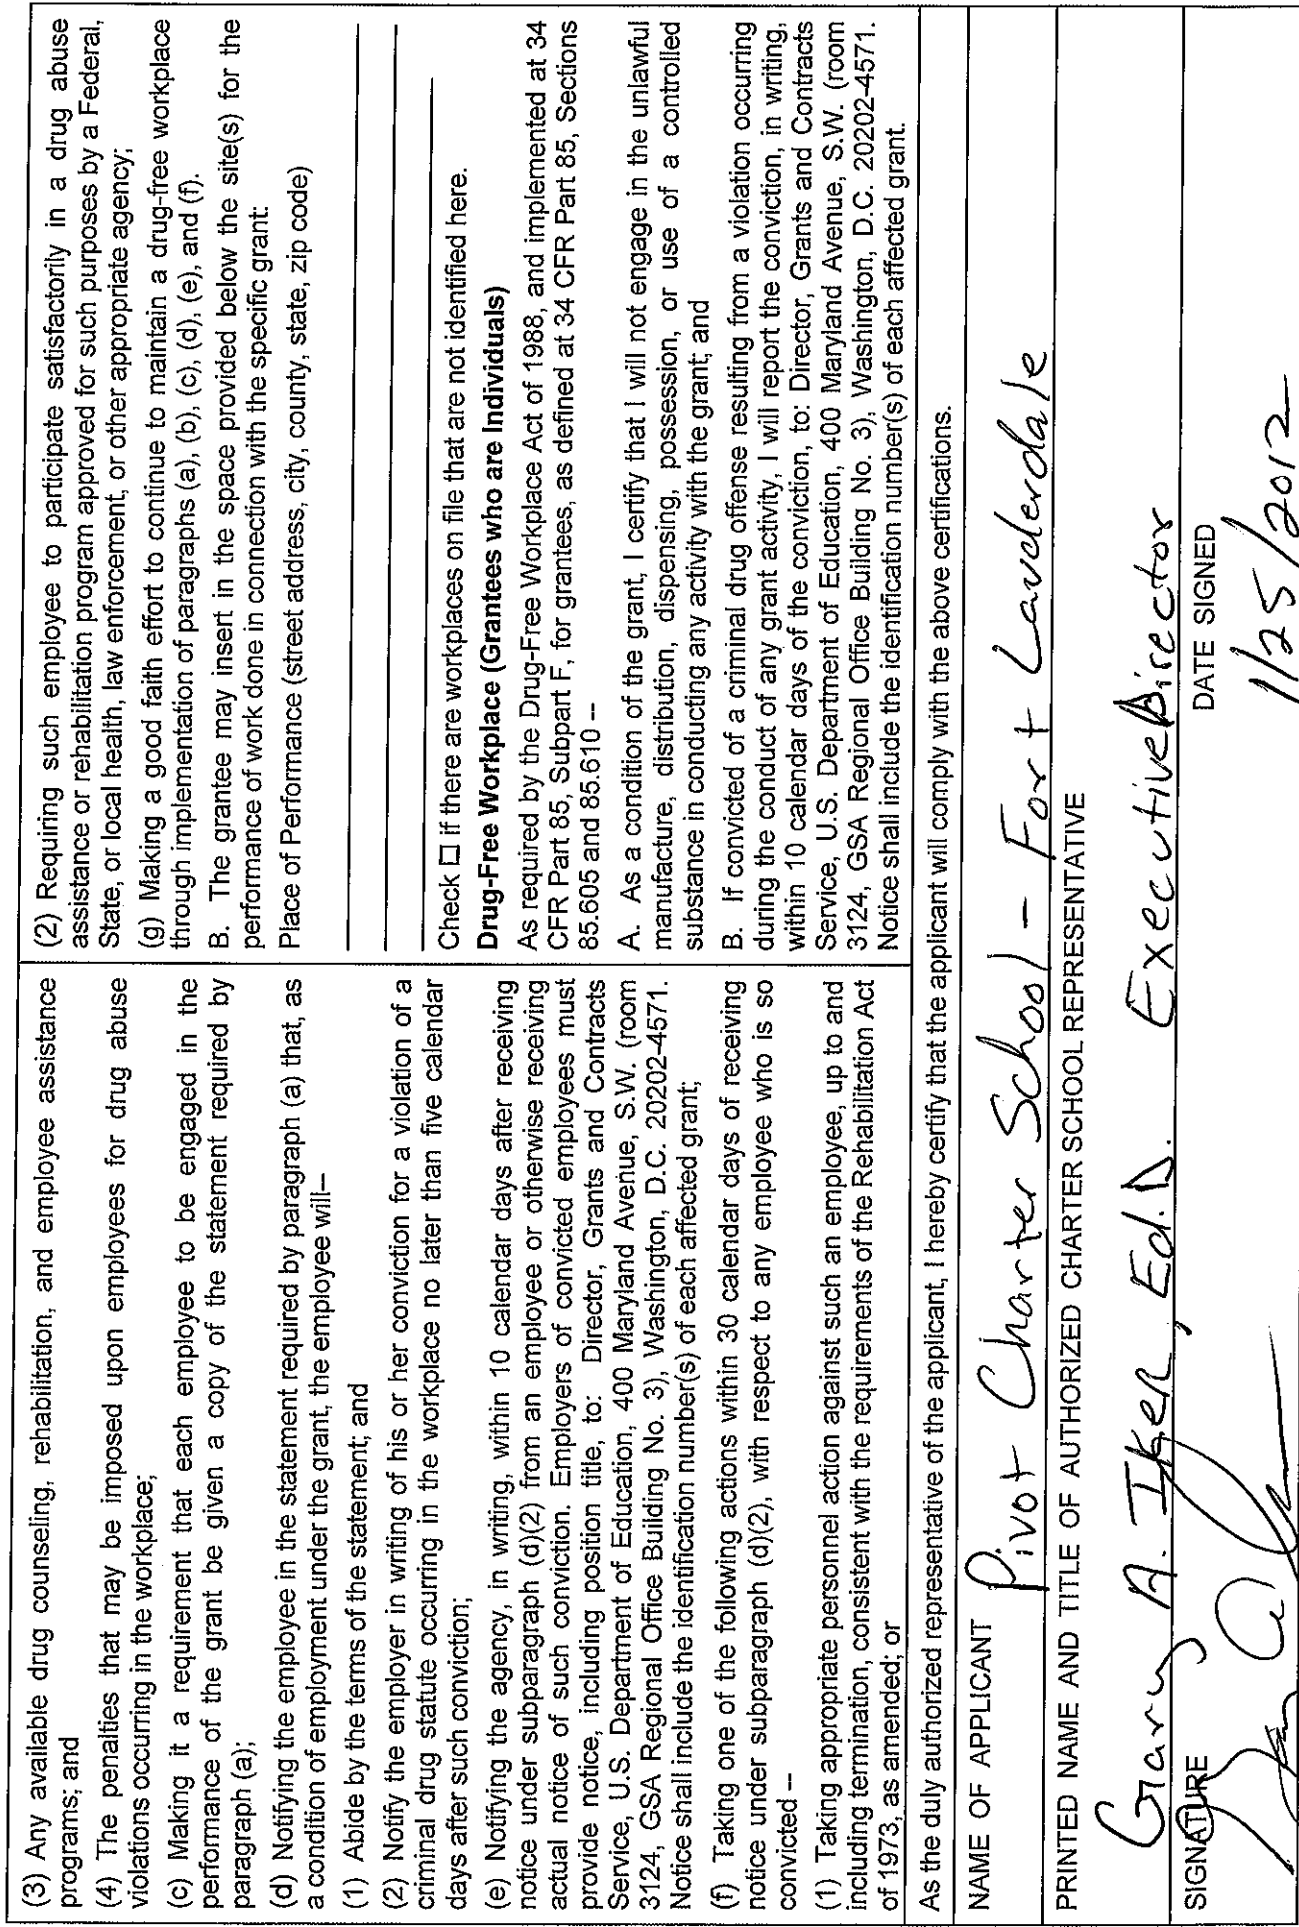 (3) Any available drug counseling, rehabilitation, and employee assistance
programs; and
(4) The penalties that may be imposed upon employees for drug abuse
violations occurring in the workplace;
(c) Making it a requirement that each employee to be engaged in the
performance of the grant be given a copy of the statement required by
paragraph (a);
(d) Notifying the employee in the statement required by paragraph (a) that, as
a condition of employment under the grant, the employee will–
(1) Abide by the terms of the statement; and
(2) Notify the employer in writing of his or her conviction for a violation of a
criminal drug statute occurring in the workplace no later than five calendar
days after such conviction;
(e) Notifying the agency, in writing, within 10 calendar days after receiving
notice under subparagraph (d)(2) from an employee or otherwise receiving
actual notice of such conviction. Employers of convicted employees must
provide notice, including position title, to: Director, Grants and Contracts
Service, U.S. Department of Education, 400 Maryland Avenue, S.W. (room
3124, GSA Regional Office Building No. 3), Washington, D.C. 20202-4571.
Notice shall include the identification number(s) of each affected grant;
(f) Taking one of the following actions within 30 calendar days of receiving
notice under subparagraph (d)(2), with respect to any employee who is so
convicted --
(1) Taking appropriate personnel action against such an employee, up to and
including termination, consistent with the requirements of the Rehabilitation Act
of 1973, as amended; or
(2) Requiring such employee to participate satisfactorily in a drug abuse
assistance or rehabilitation program approved for such purposes by a Federal,
State, or local health, law enforcement, or other appropriate agency;
(g) Making a good faith effort to continue to maintain a drug-free workplace
through implementation of paragraphs (a), (b), (c), (d), (e), and (f).
B. The grantee may insert in the space provided below the site(s) for the
performance of work done in connection with the specific grant:
Place of Performance (street address, city, county, state, zip code)
Check ☐ if there are workplaces on file that are not identified here.
Drug-Free Workplace (Grantees who are Individuals)
As required by the Drug-Free Workplace Act of 1988, and implemented at 34
CFR Part 85, Subpart F, for grantees, as defined at 34 CFR Part 85, Sections
85.605 and 85.610 --
A. As a condition of the grant, I certify that I will not engage in the unlawful
manufacture, distribution, dispensing, possession, or use of a controlled
substance in conducting any activity with the grant; and
B. If convicted of a criminal drug offense resulting from a violation occurring
during the conduct of any grant activity, I will report the conviction, in writing,
within 10 calendar days of the conviction, to: Director, Grants and Contracts
Service, U.S. Department of Education, 400 Maryland Avenue, S.W. (room
3124, GSA Regional Office Building No. 3), Washington, D.C. 20202-4571.
Notice shall include the identification number(s) of each affected grant.
As the duly authorized representative of the applicant, I hereby certify that the applicant will comply with the above certifications.
NAME OF APPLICANT Pivot Charter School - Fort Lauderdale
PRINTED NAME AND TITLE OF AUTHORIZED CHARTER SCHOOL REPRESENTATIVE
Gary A. Iker, Ed.D. Executive Director
SIGNATURE
DATE SIGNED
1/25/2012